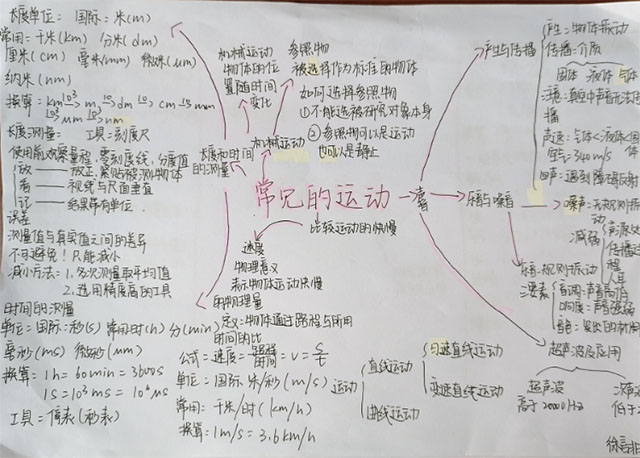 长度单位: 国际: 米(m)
常用: 千米(km) 分米(dm)
厘米(cm) 毫米(mm) 微米(μm)
纳米(nm)
换算: km 10³ m 10 dm 10 cm 10 mm
10³ μm 10³ nm
长度测量: 工具: 刻度尺
使用前观察量程, 零刻度线, 分度值
放 — 放正, 紧贴被测物体
看 — 视线与尺面垂直
记 — 结果带有单位
误差
测量值与真实值之间的差异
不可避免! 只能减小
减小方法: 1. 多次测量取平均值
2. 选用精度高的工具
时间的测量
单位: 国际: 秒(s) 常用时(h) 分(min)
毫秒(ms) 微秒(μm)
换算: 1h = 60min = 3600s
1s = 10³ms = 10⁶μs
工具: 停表(秒表)
长度和时间
的测量
机械运动
物体的位
置随时间
变化
机械运动
参照物
被选择作为标准的物体
如何选择参照物
①不能选被研究对象本身
②参照物可以是运动
也可以是静止
常见的运动
比较运动的快慢
速度
物理意义
表示物体运动快慢
的物理量
定义: 物体通过路程与所用
时间的比
公式: 速度 = 路程/时间 = v = s/t
单位: 国际 米/秒(m/s)
常用: 千米/时(km/h)
换算: 1m/s = 3.6km/h
运动
直线运动
曲线运动
匀速直线运动
变速直线运动
产生与传播
产生: 物体振动
传播: 介质
固体 液体 气体
注意: 真空中声音无法传
播
声速: 气体<液体<
空气: 340m/s
回声: 遇到障碍反射
乐音与噪音
噪声: 无规则振
动
减弱
声源处
传播过
程
人耳
乐音: 规则振动
三要素
音调: 声音高低
响度: 声音强弱
音色:
超声波及应用
超声波
高于20000Hz
次声波
低于